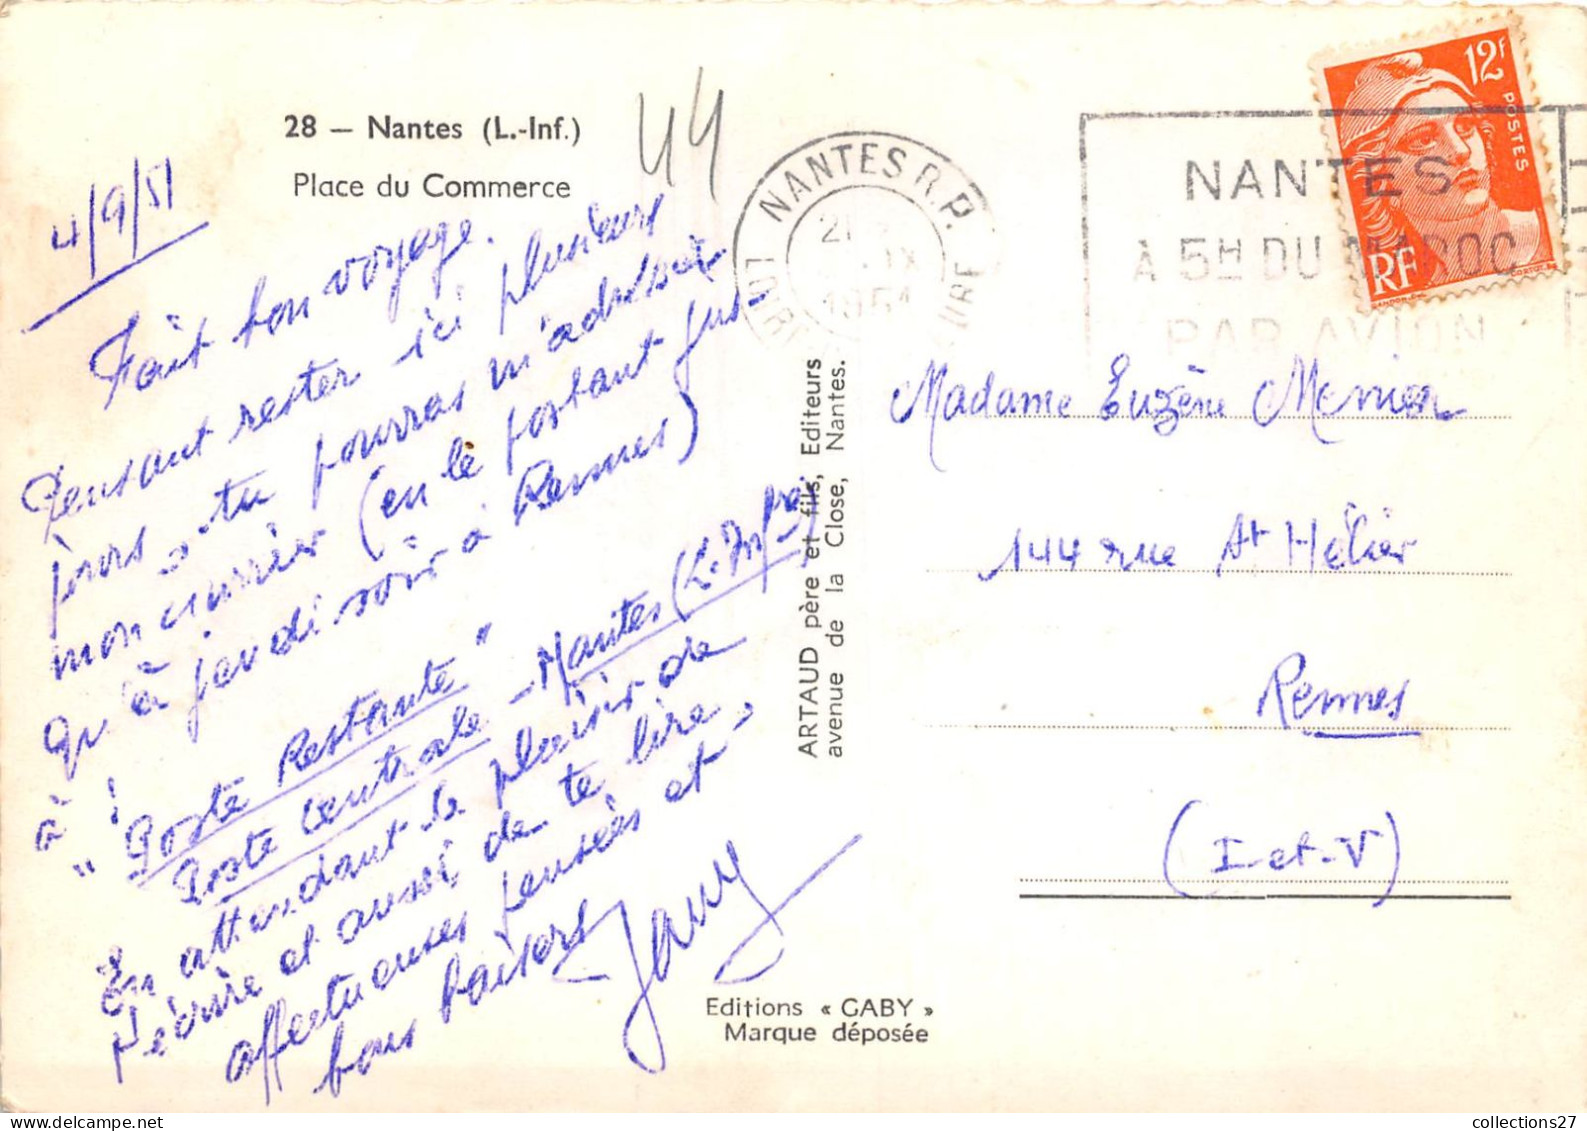 28 — Nantes (L.-Inf.)
Place du Commerce
44
4/9/51
Fait bon voyage.
Pensant rester ici plusieurs
jours, tu pourras m'adresser
mon courrier (en le postant jus-
qu'à jeudi soir à Rennes)
à :
"Poste Restante"
Poste Centrale - Nantes (L. Infre)
En attendant le plaisir de
t'écrire et aussi de te lire,
affectueuses pensées et
bons baisers
ARTAUD père et fils, Editeurs
avenue de la Close, Nantes.
Editions « GABY »
Marque déposée
NANTES R.P.
LOIRE
21
IX
1951
NANTES
A 5H DU MAROC
PAR AVION
12F
POSTES
RF
Madame Eugène
144 rue St Hélier
Rennes
(I-et-V)
collections27